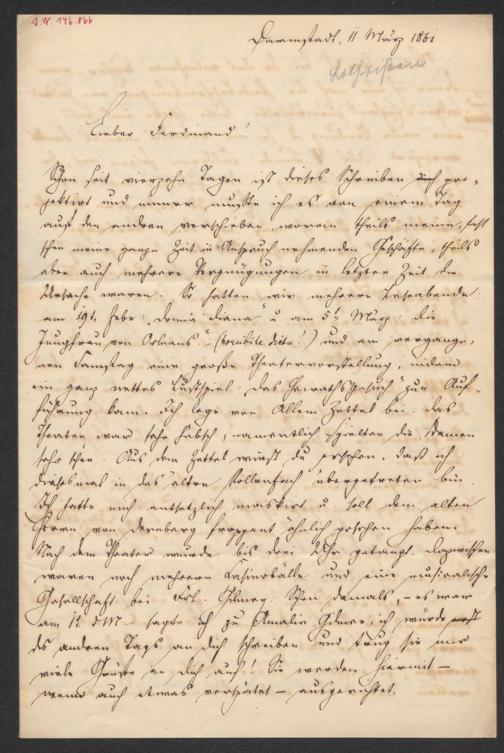 J.N. 146.866
Darmstadt, 11 März 1861
Lieber Ferdinand!
Schon seit vierzehn Tagen ist dieses Schreiben pro-
jektirt und immer mußte ich es von einem Tag
auf den andern verschieben, woran theils meine, fast
meine ganze Zeit in Anspruch nehmenden Geschäfte, theils
aber auch mehrere Vergnügungen in letzter Zeit die
Ursache waren. So hatten wir mehrere Leseabende:
am 19t. Febr: "Donna Diana" u. am 5t März: die
"Jungfrau von Orleans" (horribile dictu!) und am vergange-
nen Samstag eine große Theatervorstellung, indem
ein ganz nettes Lustspiel "Das Heirathsgesuch" zur Auf-
führung kam. Ich lege von Allem Zettel bei. Das
Theater war sehr hübsch, namentlich spielten die Damen
sehr schön. Aus dem Zettel wirst du ersehen, daß ich
diesesmal in das alten Rollenfach übergetreten bin.
Ich hatte mich entsetzlich maskirt u. soll dem alten
Herrn von Dernberg frappant ähnlich gesehen haben.
Nach dem Theater wurde bis drei Uhr getanzt. Dazwischen
waren noch mehrere Casinobälle und eine musicalische
Gesellschaft bei Frl. Gilmer. Schon damals, - es war
am 1t. d M - sagte ich zu Amalie Gilmer, ich würde
des andern Tags an dich schreiben und trug sie mir
viele Grüße an Dich auf! Sie werden hiermit -
wenn auch etwas verspätet - ausgerichtet.